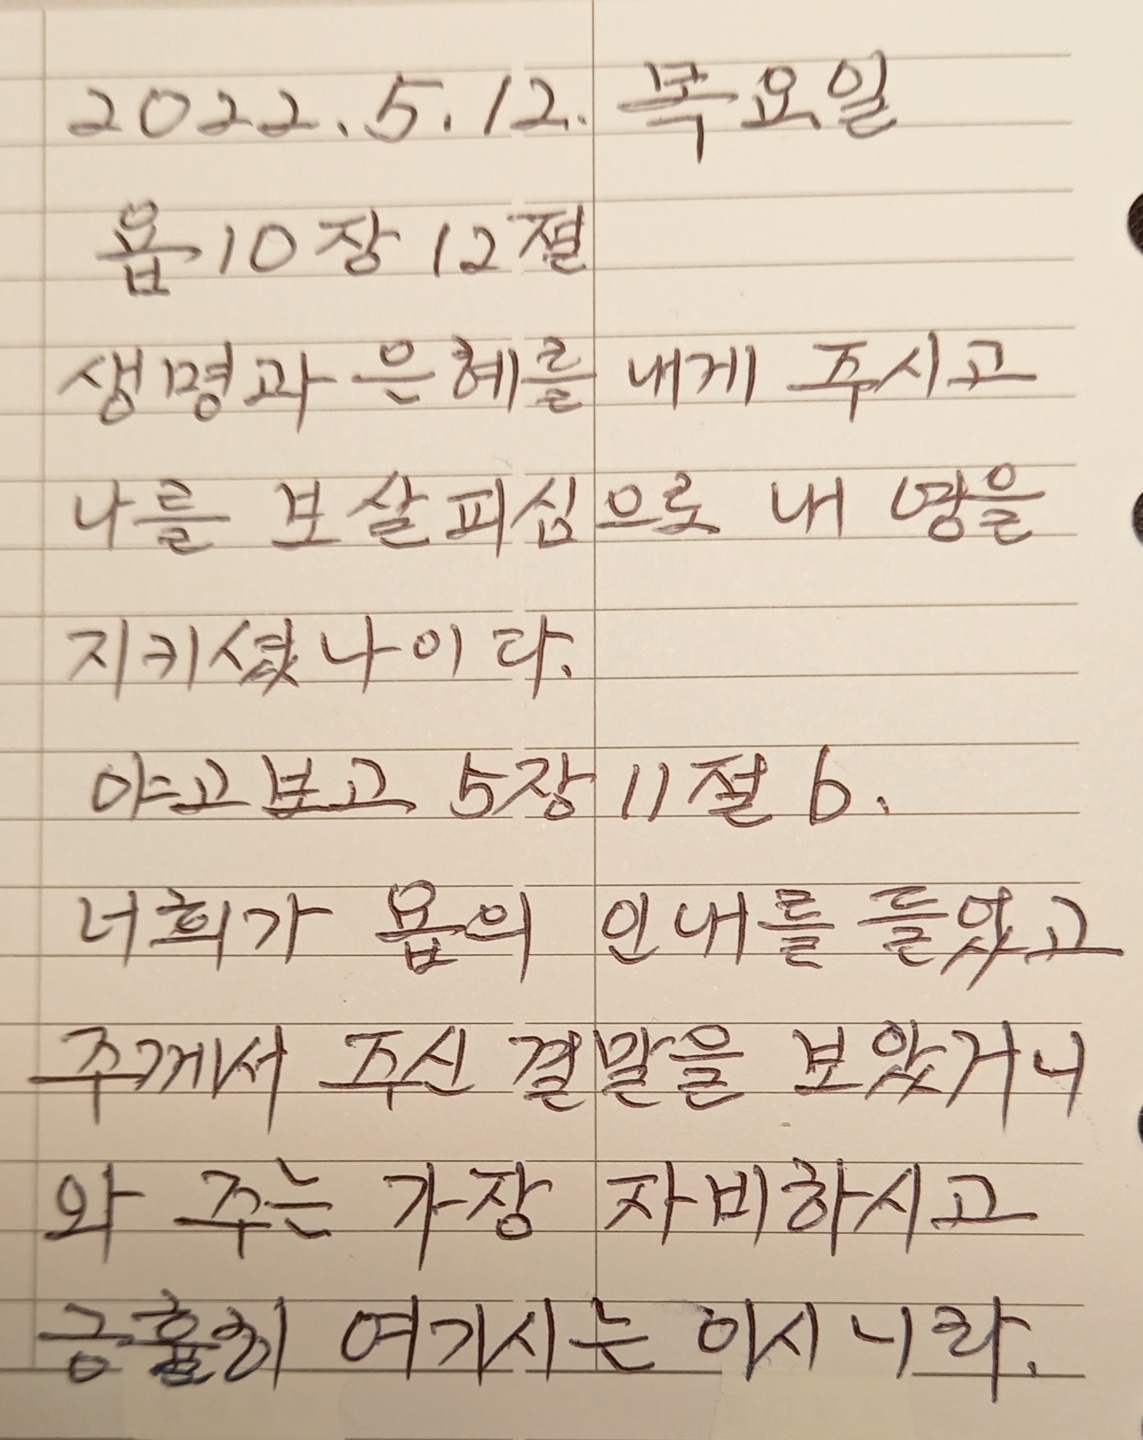 2022.5.12. 목요일
욥 10장 12절
생명과 은혜를 내게 주시고
나를 보살피심으로 내 영을
지키셨나이다.
야고보고 5장 11절 b.
너희가 욥의 인내를 들었고
주께서 주신 결말을 보았거니
와 주는 가장 자비하시고
긍휼히 여기시는 이시니라.